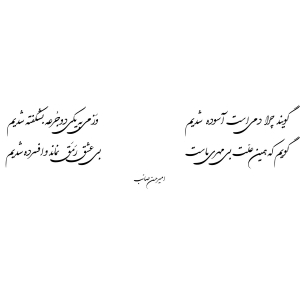 گویند چرا دمی است آسوده شدیم
وز می به یکی دو جرعه بشکفته شدیم
گویم که همین علّت بی مهری ماست
بی عشق رَمَق نماند و افسرده شدیم
امیرحسن صائب